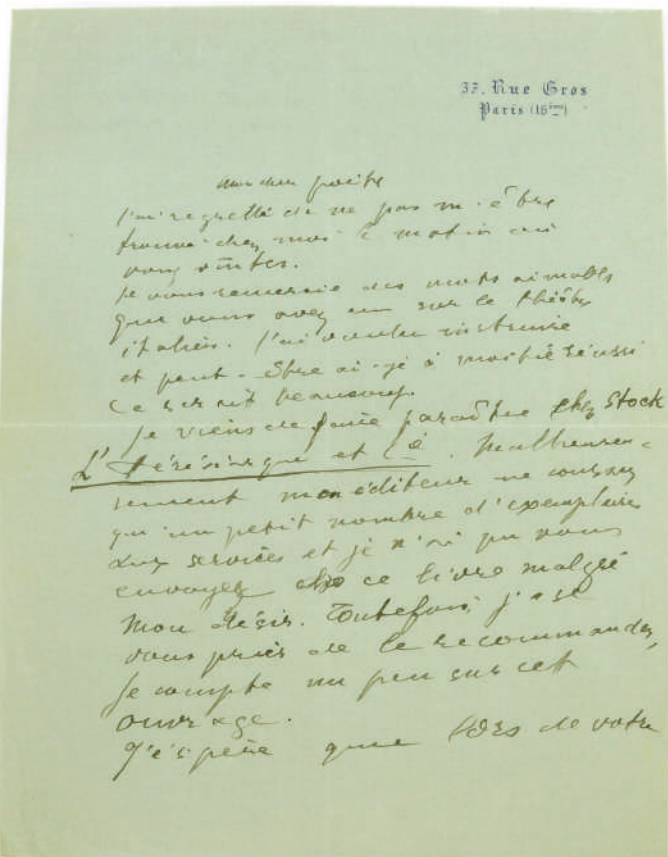 37, Rue Gros
Paris (16ème)
Mon cher poète
J'ai regretté de ne pas m'être
trouvé chez moi le matin où
vous vîntes.
Je vous remercie des mots aimables
que vous avez eu sur le théâtre
italien. J'ai voulu instruire
et peut-être ai-je à moitié réussi
ce serait beaucoup.
Je viens de faire paraître chez Stock
L'Hérésiarque et Cie. Malheureu-
sement mon éditeur ne consacre
qu'un petit nombre d'exemplaires
aux services et je n'ai pu vous
envoyer ce livre malgré
mon désir. Toutefois j'ose
vous prier de le recommander,
je compte un peu sur cet
ouvrage.
J'espère que lors de votre